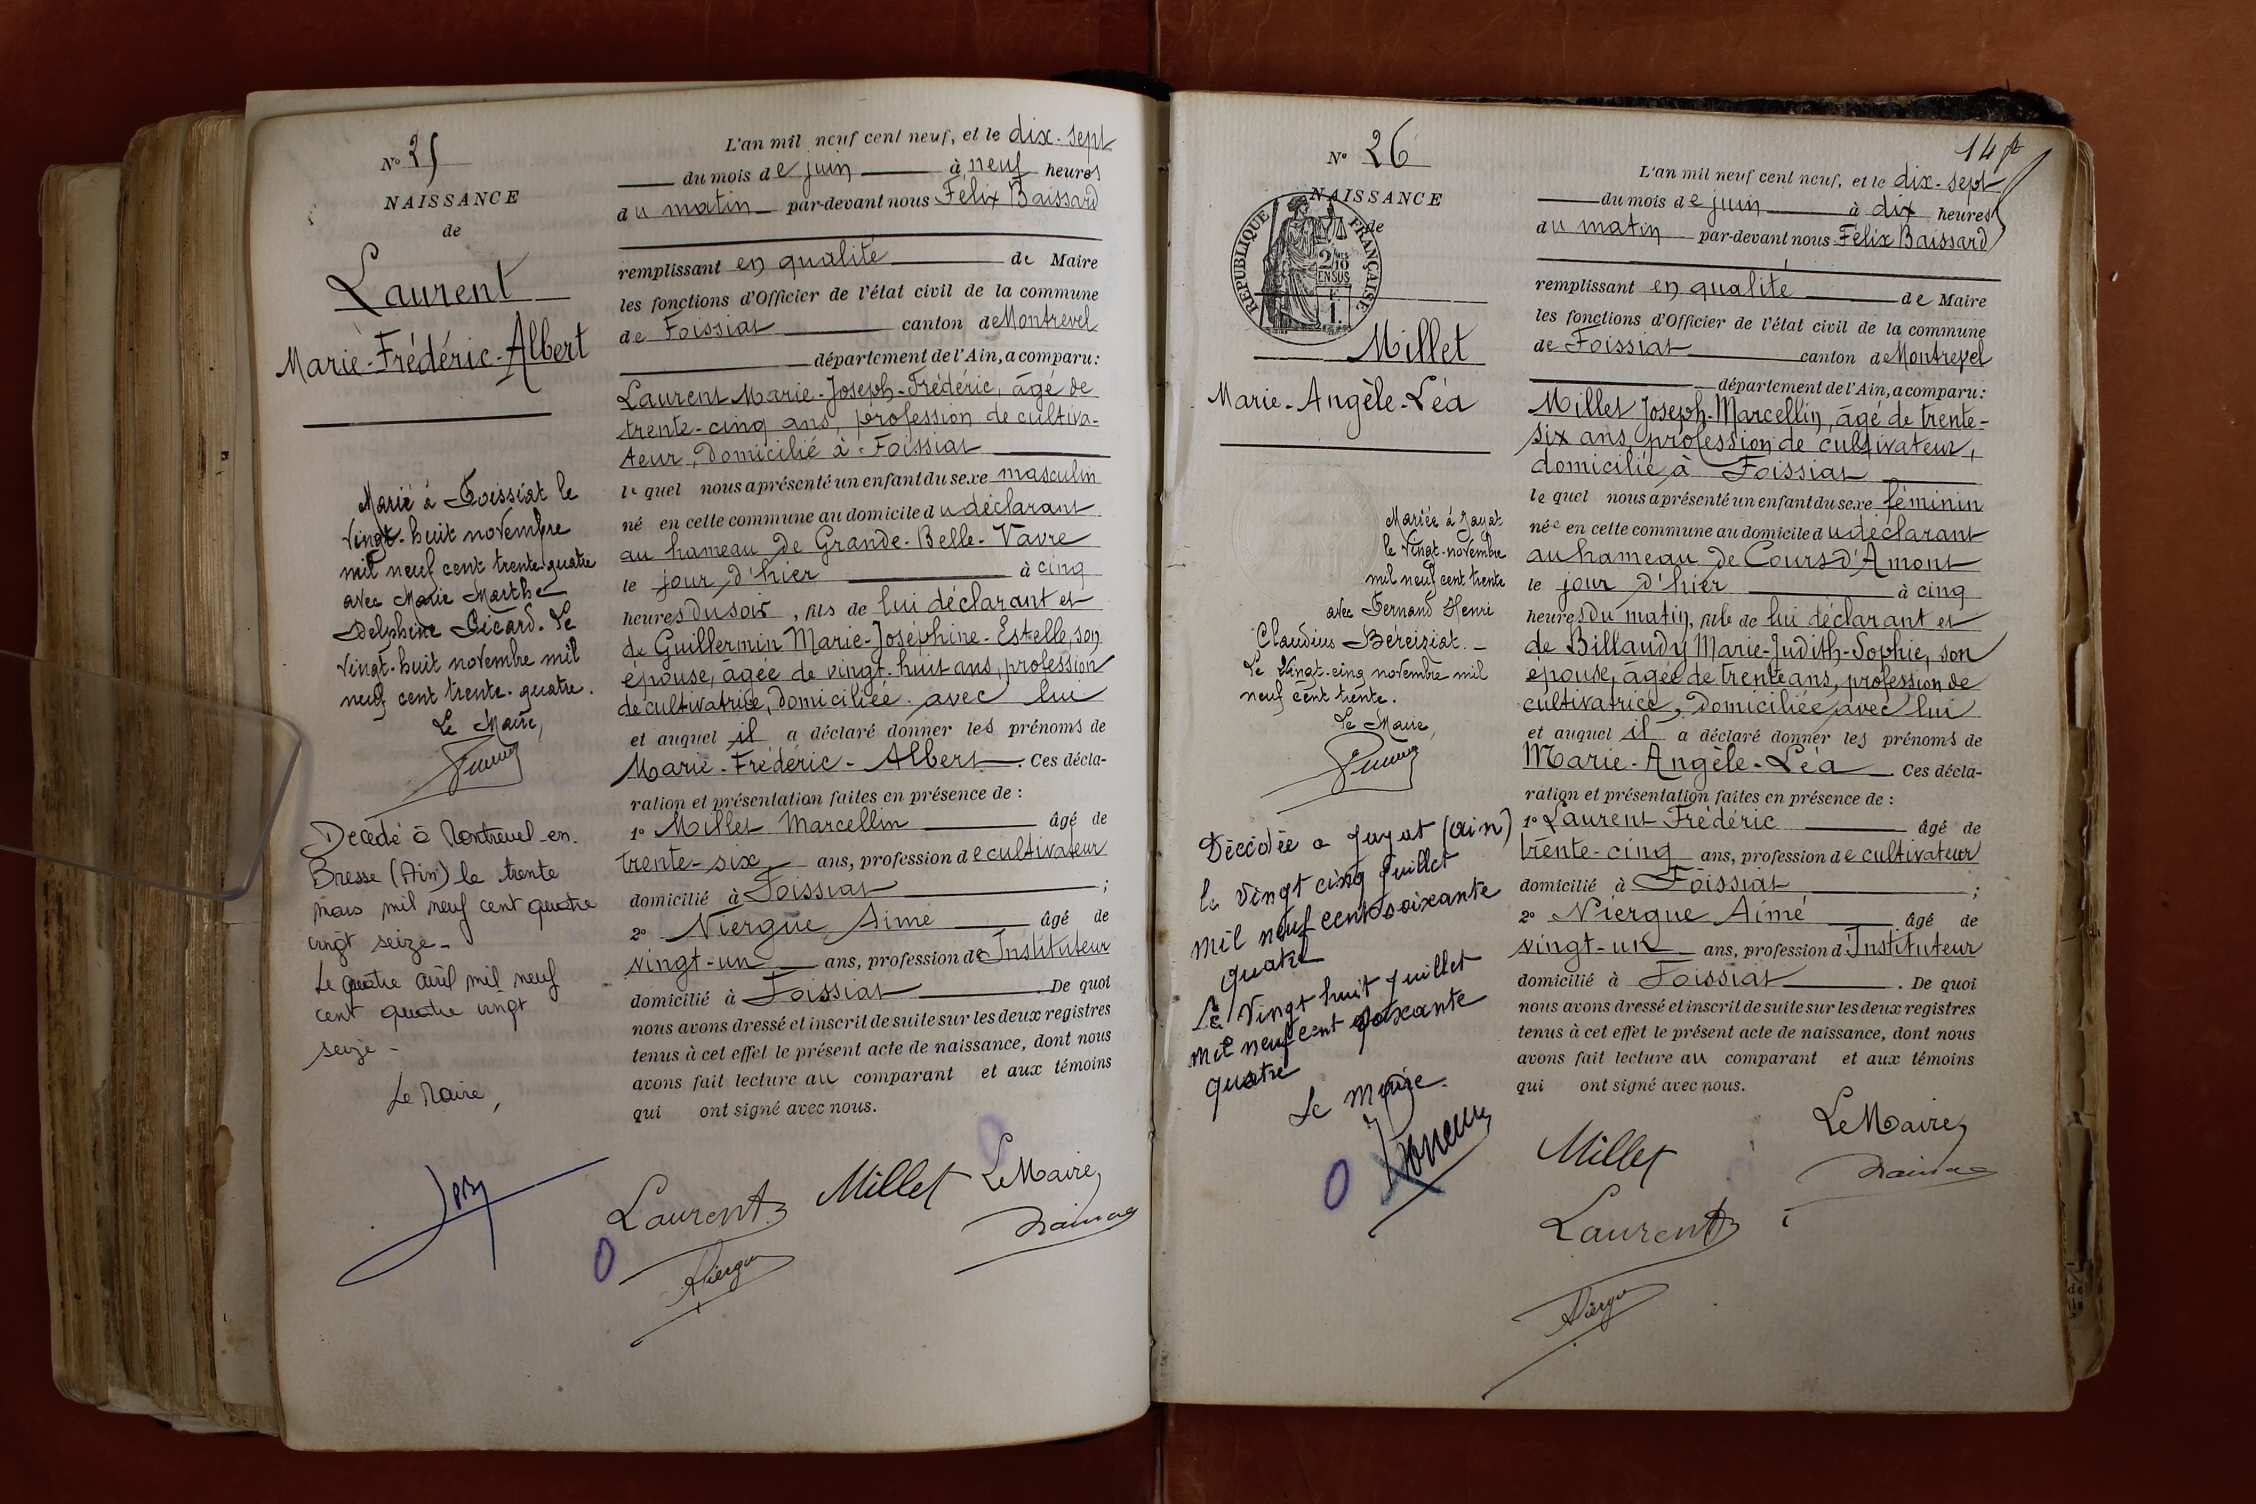 N° 25
NAISSANCE
de
Laurent
Marie-Frédéric-Albert
Marié à Foissiat le
vingt-huit novembre
mil neuf cent trente quatre
avec Marie Marthe
Delphine Picard. Le
vingt-huit novembre mil
neuf cent trente-quatre.
Le Maire,
Décédé à Montrevel-en-
Bresse (Ain) le trente
mars mil neuf cent quatre
vingt seize-
Le quatre avril mil neuf
cent quatre vingt
seize-
Le Maire,
L'an mil neuf cent neuf, et le dix-sept
du mois de juin à neuf heures
du matin par-devant nous Félix Baissard
remplissant en qualité de Maire
les fonctions d'Officier de l'état civil de la commune
de Foissiat canton de Montrevel
département de l'Ain, a comparu:
Laurent Marie-Joseph-Frédéric, âgé de
trente-cinq ans, profession de cultiva-
teur, domicilié à Foissiat
lequel nous a présenté un enfant du sexe masculin
né en cette commune au domicile du déclarant
au hameau de Grande-Belle-Vavre
le jour d'hier à cinq
heures du soir, fils de lui déclarant et
de Guillermin Marie-Joséphine-Estelle, son
épouse, âgée de vingt-huit ans, profession
de cultivatrice, domiciliée avec lui
et auquel il a déclaré donner les prénoms de
Marie-Frédéric-Albert. Ces décla-
ration et présentation faites en présence de :
1° Millet Marcellin âgé de
trente-six ans, profession de cultivateur
domicilié à Foissiat ;
2° Niergue Aimé âgé de
vingt-un ans, profession de Instituteur
domicilié à Foissiat. De quoi
nous avons dressé et inscrit de suite sur les deux registres
tenus à cet effet le présent acte de naissance, dont nous
avons fait lecture au comparant et aux témoins
qui ont signé avec nous.
Laurent Millet Le Maire,
Niergue
14
N° 26
NAISSANCE
de
RÉPUBLIQUE FRANÇAISE
2/10
EN SUS
1.
Millet
Marie-Angèle-Léa
Mariée à Jayat
le vingt-novembre
mil neuf cent trente
avec Fernand Henri
Claudius Béreiziat.-
Le vingt-cinq novembre mil
neuf cent trente.
Le Maire,
Décédée a Jayat (Ain)
le vingt cinq juillet
mil neuf cent soixante
quatre
Le vingt huit juillet
mil neuf cent soixante
quatre
Le Maire.
L'an mil neuf cent neuf, et le dix-sept
du mois de juin à dix heures
du matin par-devant nous Félix Baissard
remplissant en qualité de Maire
les fonctions d'Officier de l'état civil de la commune
de Foissiat canton de Montrevel
département de l'Ain, a comparu:
Millet Joseph-Marcellin, âgé de trente-
six ans, profession de cultivateur,
domicilié à Foissiat
lequel nous a présenté un enfant du sexe féminin
née en cette commune au domicile du déclarant
au hameau de Cours d'Amont
le jour d'hier à cinq
heures du matin, fille de lui déclarant et
de Billaudy Marie-Judith-Sophie, son
épouse, âgée de trente ans, profession de
cultivatrice, domiciliée avec lui
et auquel il a déclaré donner les prénoms de
Marie-Angèle-Léa. Ces décla-
ration et présentation faites en présence de :
1° Laurent Frédéric âgé de
trente-cinq ans, profession de cultivateur
domicilié à Foissiat ;
2° Niergue Aimé âgé de
vingt-un ans, profession d'Instituteur
domicilié à Foissiat. De quoi
nous avons dressé et inscrit de suite sur les deux registres
tenus à cet effet le présent acte de naissance, dont nous
avons fait lecture au comparant et aux témoins
qui ont signé avec nous.
Millet Le Maire,
Laurent
Niergue